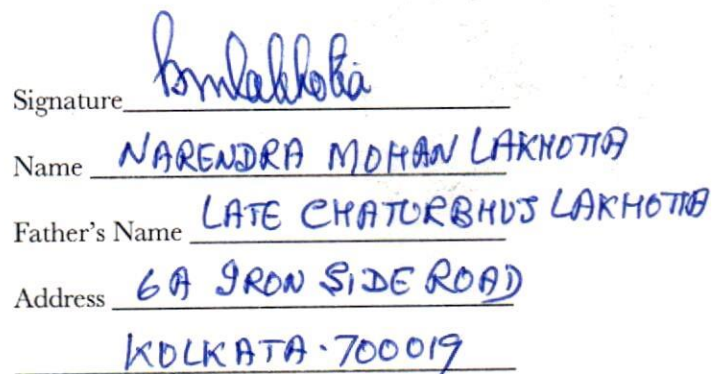 Signature
Name NARENDRA MOHAN LAKHOTIA
Father's Name LATE CHATURBHUJ LAKHOTIA
Address 6A IRON SIDE ROAD
KOLKATA.700019